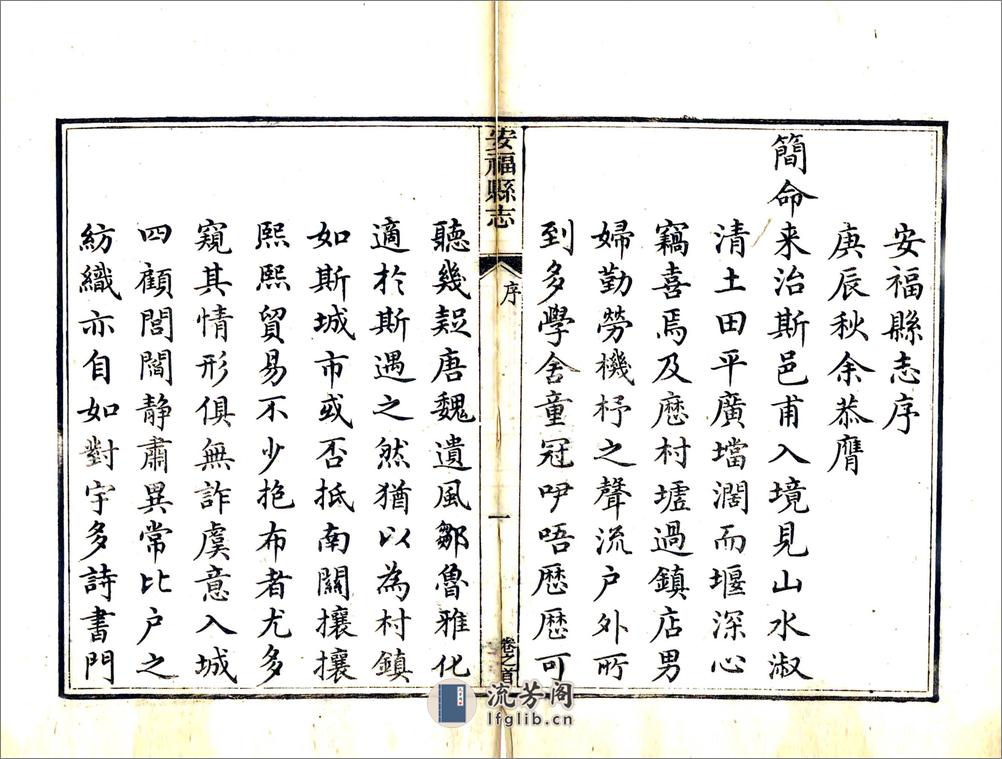 安福縣志序
庚辰秋余恭膺
簡命来治斯邑甫入境見山水淑
清土田平廣壋濶而堰深心
竊喜焉及歷村墟過鎮店男
婦勤勞機杼之聲流户外所
到多學舍童冠咿唔歷歷可
安福縣志
序
一
卷之首
聽幾疑唐魏遺風鄒魯雅化
適於斯遇之然猶以為村鎮
如斯城市或否抵南關攘攘
熙熙貿易不少抱布者尤多
窺其情形俱無詐虞意入城
四顧閭閻静肅異常比户之
紡織亦自如對宇多詩書門
流芳阁
lfglib.cn